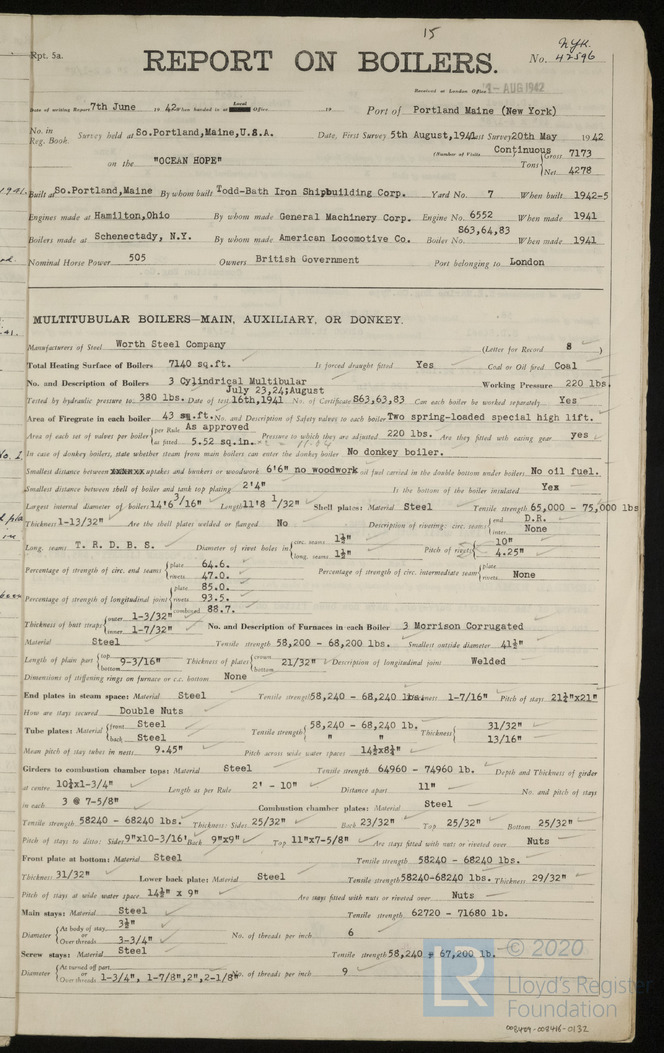 15
Rpt. 5a.
REPORT ON BOILERS.
N.Y.K.
No. 42596
Received at London Office 1- AUG 1942
Date of writing Report 7th June 1942 When handed in at Local Office 19 Port of Portland Maine (New York)
No. in Reg. Book. Survey held at So.Portland,Maine,U.S.A. Date, First Survey 5th August,1941 Last Survey 20th May 1942
(Number of Visits Continuous
on the "OCEAN HOPE" Tons Gross 7173
Net 4278
Built at So.Portland,Maine By whom built Todd-Bath Iron Shipbuilding Corp. Yard No. 7 When built 1942-5
Engines made at Hamilton,Ohio By whom made General Machinery Corp. Engine No. 6552 When made 1941
Boilers made at Schenectady, N.Y. By whom made American Locomotive Co. Boiler No. S63,64,83 When made 1941
Nominal Horse Power 505 Owners British Government Port belonging to London
MULTITUBULAR BOILERS—MAIN, AUXILIARY, OR DONKEY.
Manufacturers of Steel Worth Steel Company (Letter for Record S )
Total Heating Surface of Boilers 7140 sq.ft. Is forced draught fitted Yes Coal or Oil fired Coal
No. and Description of Boilers 3 Cylindrical Multibular Working Pressure 220 lbs.
July 23,24;August
Tested by hydraulic pressure to 380 lbs. Date of test 16th,1941 No. of Certificate S63,63,83 Can each boiler be worked separately Yes
Area of Firegrate in each boiler 43 sq.ft. No. and Description of Safety valves to each boiler Two spring-loaded special high lift.
Area of each set of valves per boiler per Rule As approved
as fitted 5.52 sq.in. Pressure to which they are adjusted 220 lbs. Are they fitted with easing gear yes
In case of donkey boilers, state whether steam from main boilers can enter the donkey boiler No donkey boiler.
Smallest distance between uptakes and bunkers or woodwork 6'6" no woodwork oil fuel carried in the double bottom under boilers No oil fuel.
Smallest distance between shell of boiler and tank top plating 2'4" Is the bottom of the boiler insulated Yes
Largest internal diameter of boilers 14'6 3/16" Length 11'8 1/32" Shell plates: Material Steel Tensile strength 65,000 - 75,000 lbs
Thickness 1-13/32" Are the shell plates welded or flanged No Description of riveting: circ. seams end D.R.
inter. None
Long. seams T. R. D. B. S. Diameter of rivet holes in circ. seams 1½"
long. seams 1½" Pitch of rivets 10"
4.25"
Percentage of strength of circ. end seams plate 64.6.
rivets 47.0. Percentage of strength of circ. intermediate seam plate rivets None
Percentage of strength of longitudinal joint plate 85.0.
rivets 93.5.
combined 88.7.
Thickness of butt straps outer 1-3/32"
inner 1-7/32" No. and Description of Furnaces in each Boiler 3 Morrison Corrugated
Material Steel Tensile strength 58,200 - 68,200 lbs. Smallest outside diameter 41½"
Length of plain part top bottom 9-3/16" Thickness of plates crown bottom 21/32" Description of longitudinal joint Welded
Dimensions of stiffening rings on furnace or c.c. bottom None
End plates in steam space: Material Steel Tensile strength 58,240 - 68,240 lbs. Thickness 1-7/16" Pitch of stays 21½"x21"
How are stays secured Double Nuts
Tube plates: Material front Steel
back Steel Tensile strength 58,240 - 68,240 lb.
" " Thickness 31/32"
13/16"
Mean pitch of stay tubes in nests 9.45" Pitch across wide water spaces 14½x8¼"
Girders to combustion chamber tops: Material Steel Tensile strength 64960 - 74960 lb. Depth and Thickness of girder
at centre 10½x1-3/4" Length as per Rule 2' - 10" Distance apart 11" No. and pitch of stays
in each 3 @ 7-5/8" Combustion chamber plates: Material Steel
Tensile strength 58240 - 68240 lbs. Thickness: Sides 25/32" Back 23/32" Top 25/32" Bottom 25/32"
Pitch of stays to ditto: Sides 9"x10-3/16" Back 9"x9" Top 11"x7-5/8" Are stays fitted with nuts or riveted over Nuts
Front plate at bottom: Material Steel Tensile strength 58240 - 68240 lbs.
Thickness 31/32" Lower back plate: Material Steel Tensile strength 58240-68240 lbs. Thickness 29/32"
Pitch of stays at wide water space 14½" x 9" Are stays fitted with nuts or riveted over Nuts
Main stays: Material Steel Tensile strength 62720 - 71680 lb.
Diameter At body of stay, or Over threads 3½"
3-3/4" No. of threads per inch 6
Screw stays: Material Steel Tensile strength 58,240 - 67,200 lb.
Diameter At turned off part, or Over threads 1-3/4", 1-7/8",2",2-1/8" No. of threads per inch 9
LR © 2020
Lloyd's Register
Foundation
008409-008416-0132